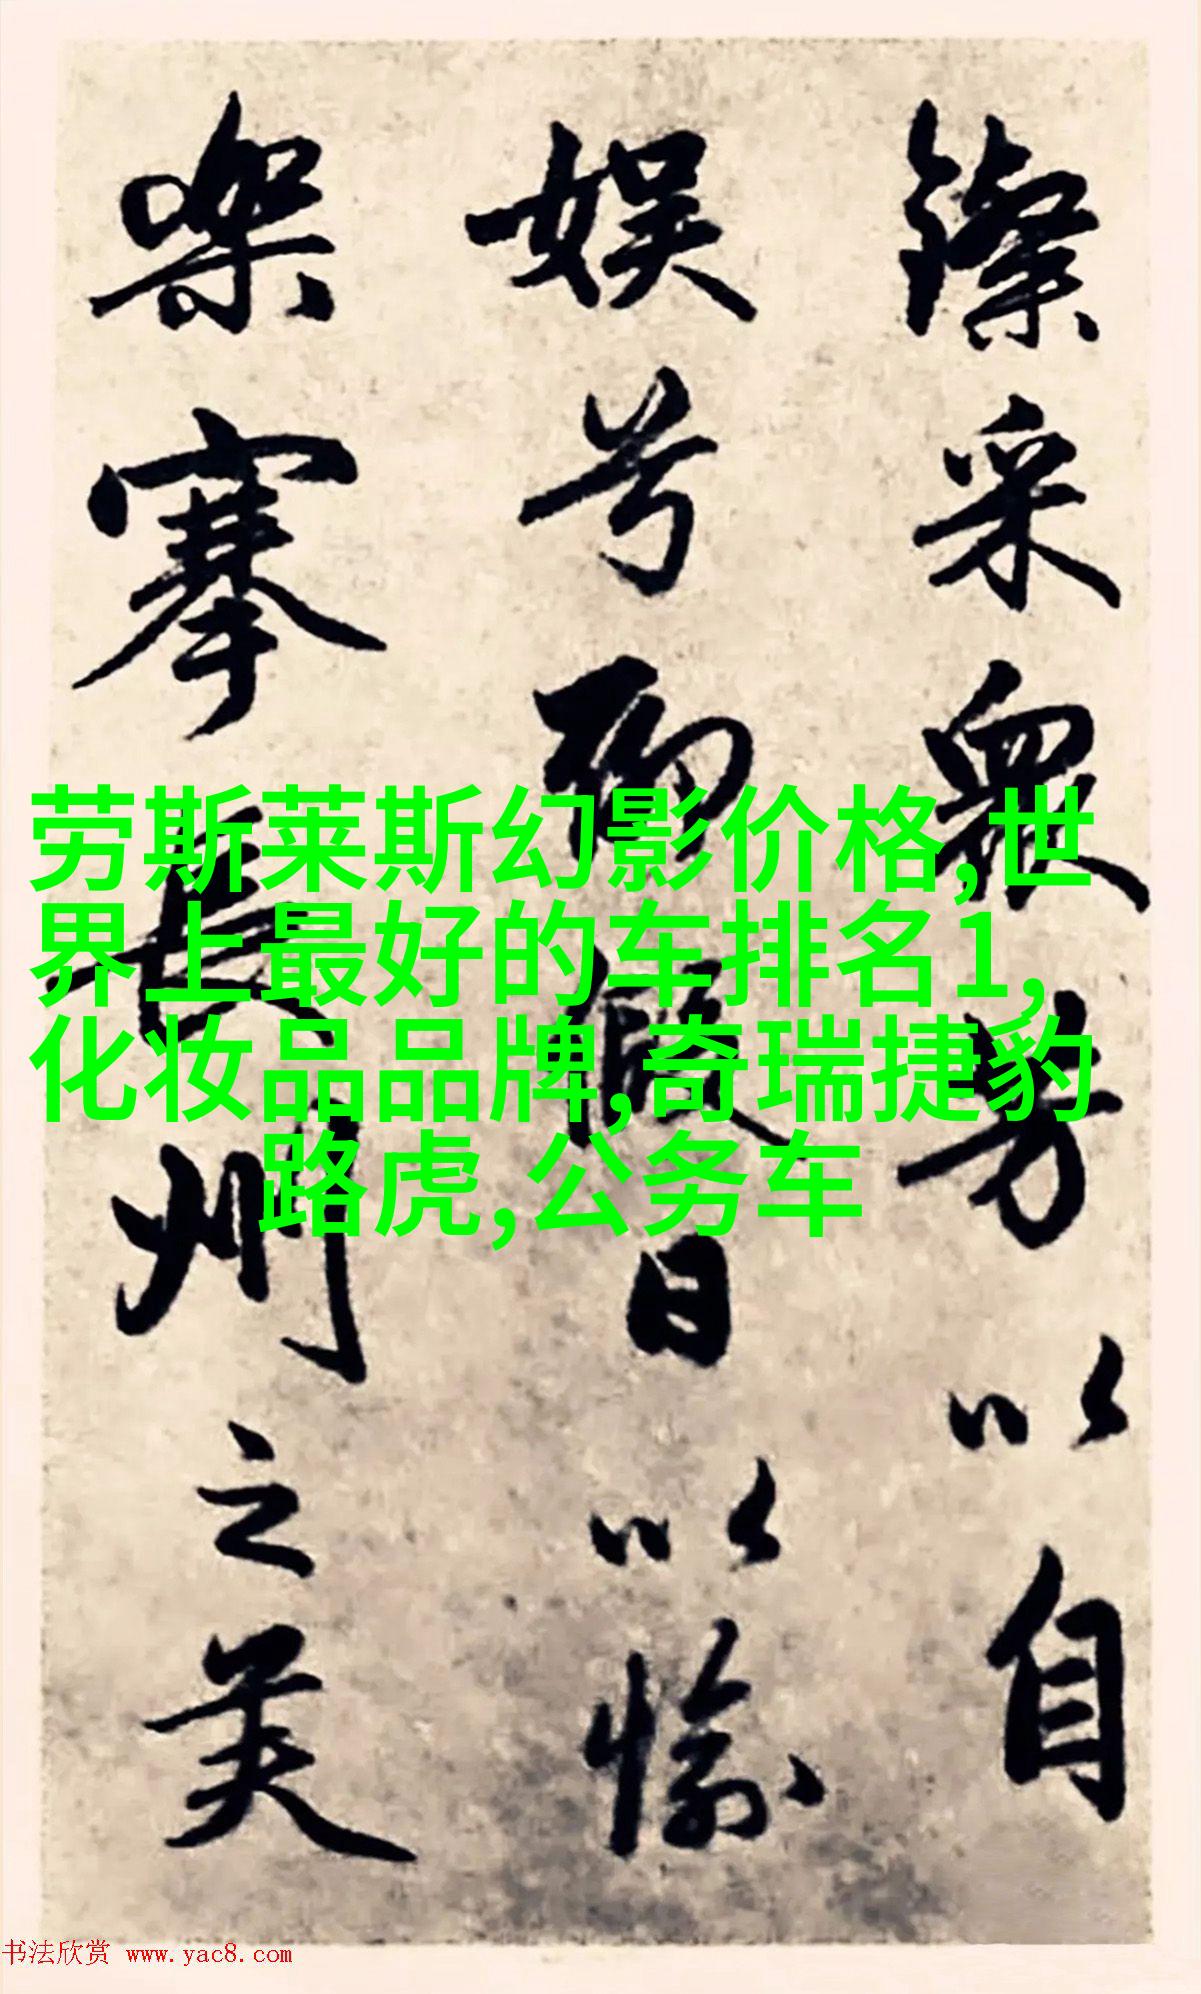 采眾芳以自
娱兮聊日以愉
樂搴長洲之美
劳斯莱斯幻影价格,世
界上最好的车排名1,
化妆品品牌,奇瑞捷豹
路虎,公务车
书法欣赏 www.yac8.com